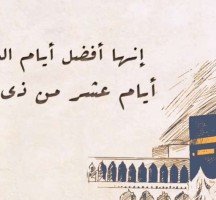 إنها أفضل أيام
أيام عشر من ذى